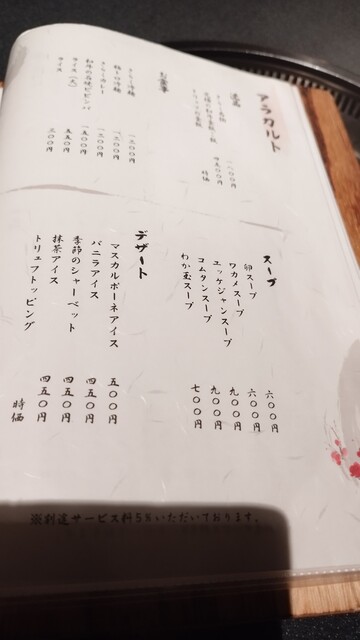 アラカルト
逸品
一八〇〇円
四五〇〇円
時価
お食事
冷麺 一二〇〇円
冷麺 一二〇〇円
カレー 一二〇〇円
ビビンバ 一五〇〇円
ライス（大） 五五〇円
ライス 三〇〇円
スープ
卵スープ 六〇〇円
ワカメスープ 六〇〇円
ユッケジャンスープ 九〇〇円
コムタンスープ 九〇〇円
わか玉スープ 七〇〇円
デザート
マスカルポーネアイス 五〇〇円
バニラアイス 四五〇円
季節のシャーベット 四五〇円
抹茶アイス 四五〇円
トリュフトッピング 時価
※別途サービス料5%いただいております。